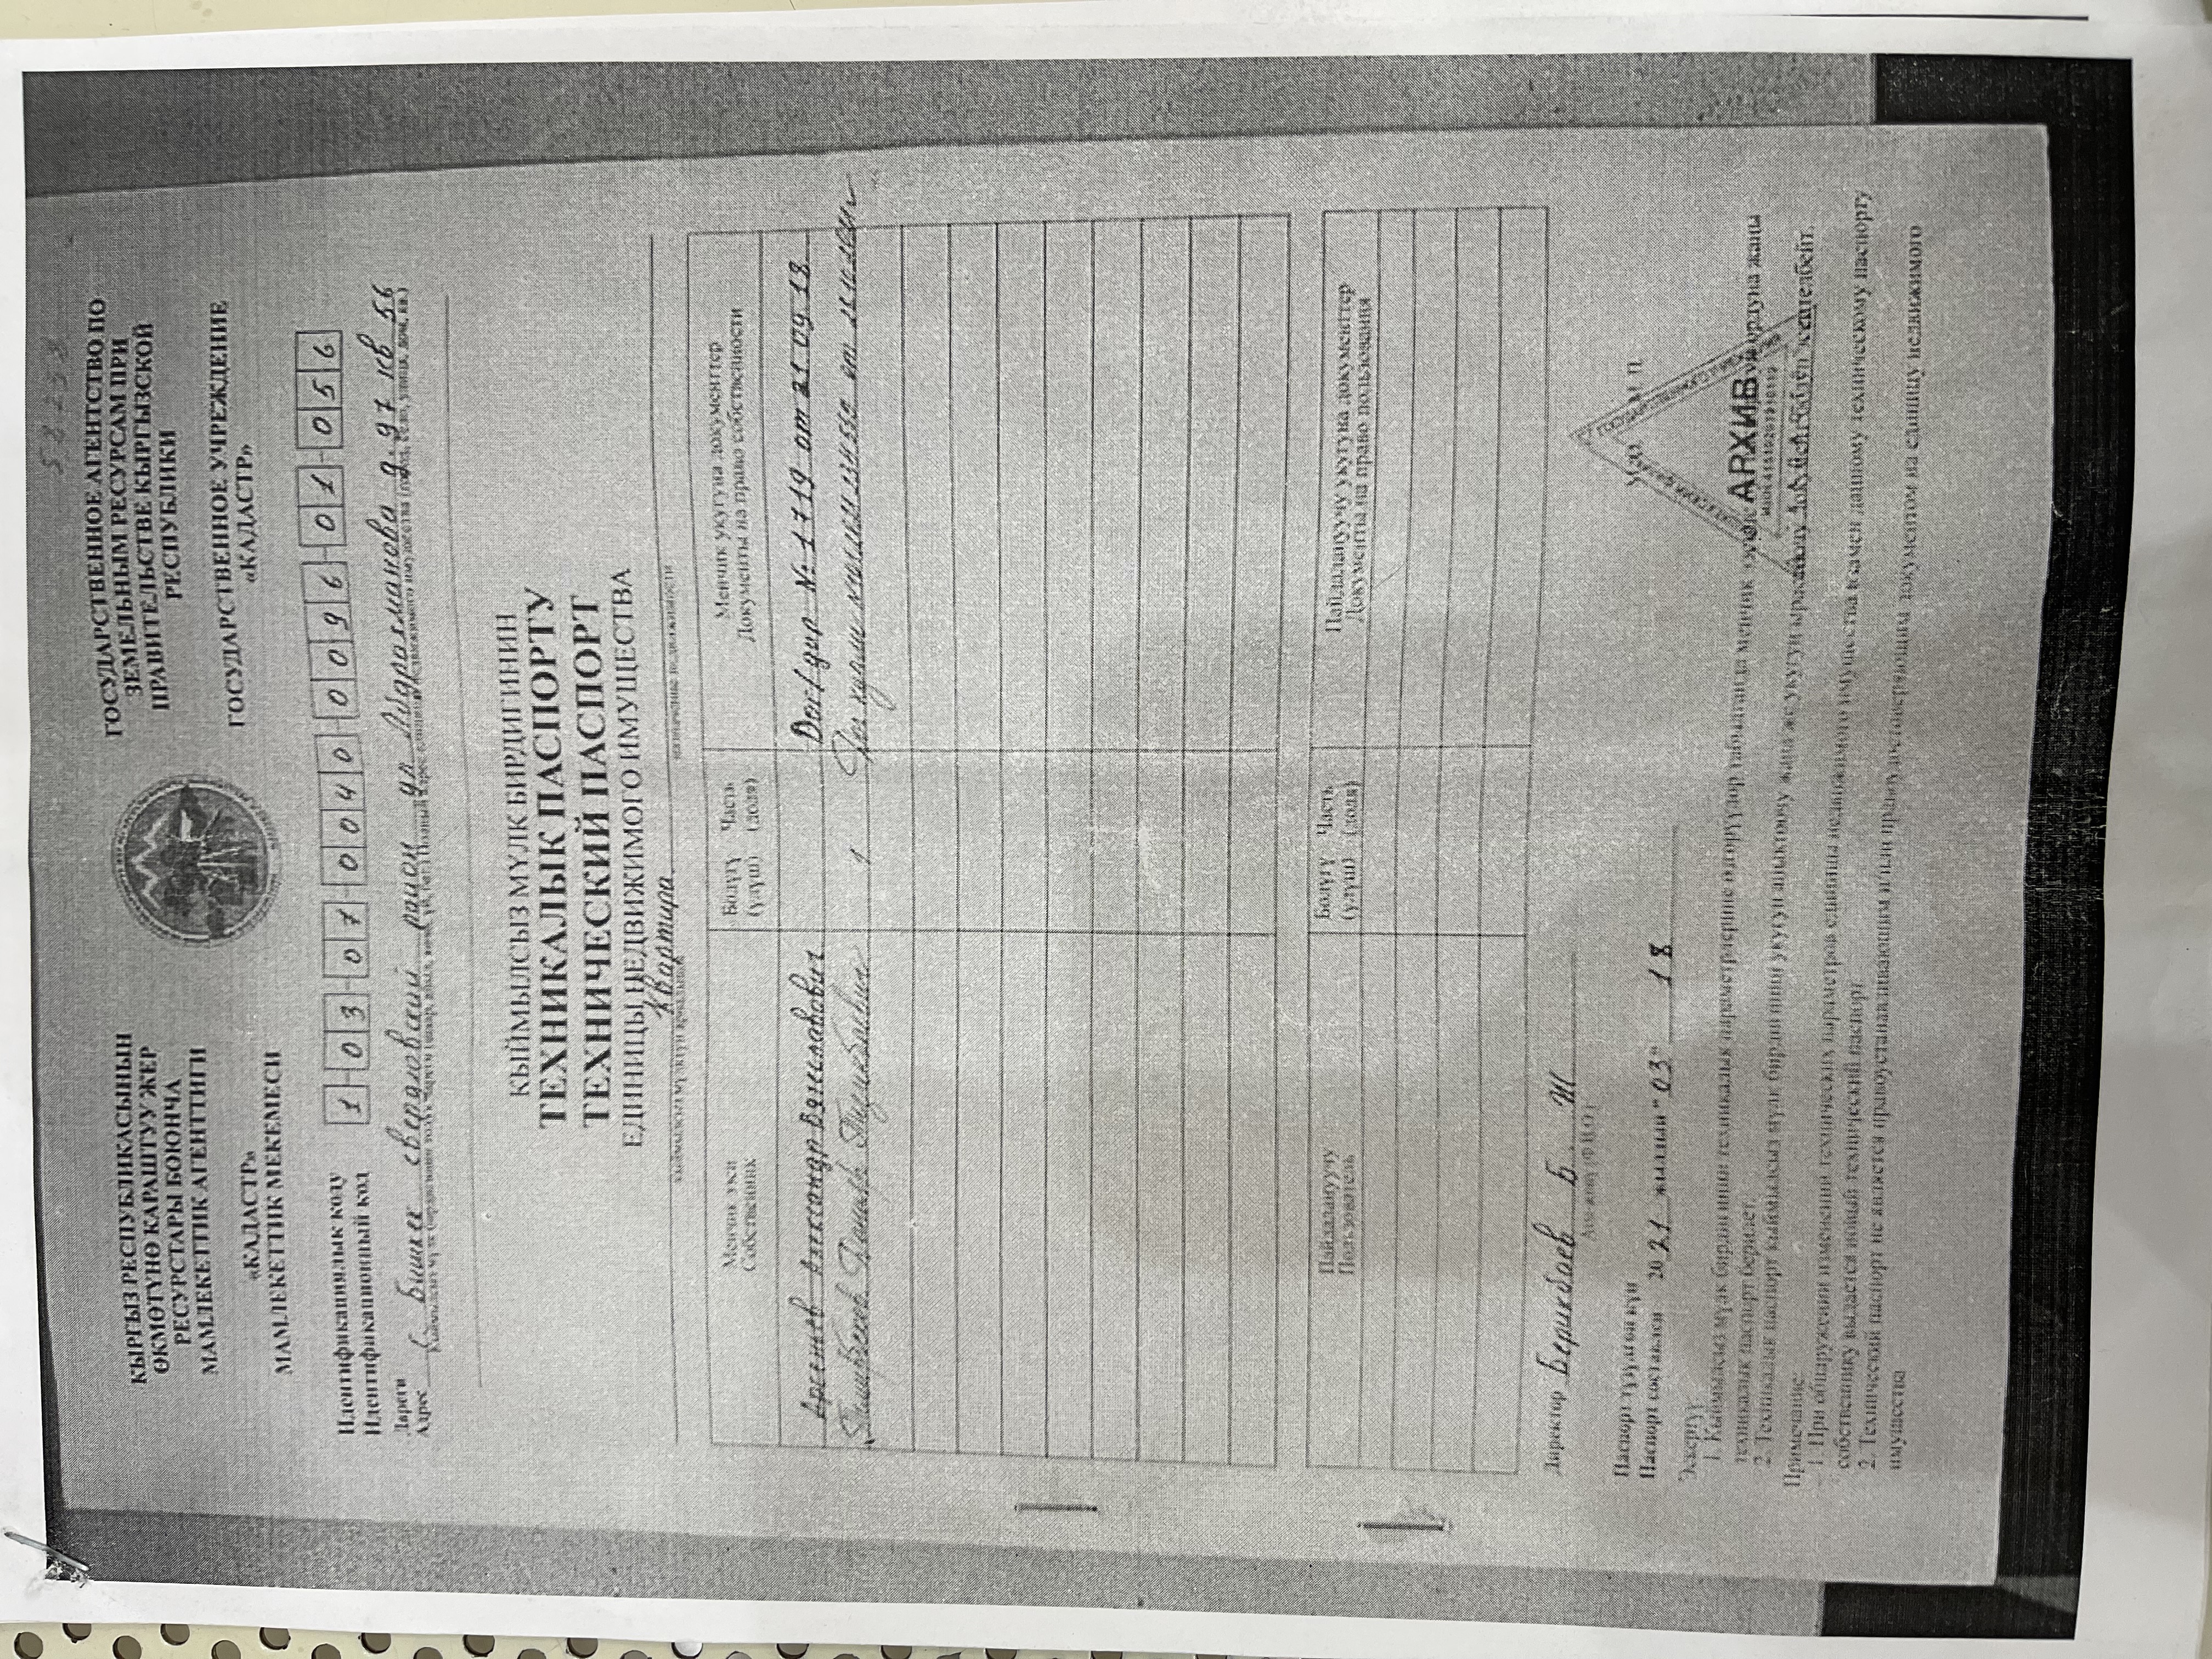 58233
КЫРГЫЗ РЕСПУБЛИКАСЫНЫН
ӨКМӨТҮНӨ КАРАШТУУ ЖЕР
РЕСУРСТАРЫ БОЮНЧА
МАМЛЕКЕТТИК АГЕНТТИГИ
«КАДАСТР»
МАМЛЕКЕТТИК МЕКЕМЕСИ
ГОСУДАРСТВЕННОЕ АГЕНТСТВО ПО
ЗЕМЕЛЬНЫМ РЕСУРСАМ ПРИ
ПРАВИТЕЛЬСТВЕ КЫРГЫЗСКОЙ
РЕСПУБЛИКИ
ГОСУДАРСТВЕННОЕ УЧРЕЖДЕНИЕ
«КАДАСТР»
Идентификациялык коду
Идентификационный код
1 03 07 0040 0096 01 056
Дареги
Адрес г. Бишкек свердловский район ул Абдрахманова д. 97 кв 56
КЫЙМЫЛСЫЗ МҮЛК БИРДИГИНИН
ТЕХНИКАЛЫК ПАСПОРТУ
ТЕХНИЧЕСКИЙ ПАСПОРТ
ЕДИНИЦЫ НЕДВИЖИМОГО ИМУЩЕСТВА
Квартира
Менчик ээси
Собственник
Бөлүгү (үлүш) Часть (доля)
Менчик укугуна документтер
Документы на право собственности
Арсентьев Александр Вячеславович
Дог/дар № 1719 от 21 09 18
1
Пайдалануучу
Пользователь
Бөлүгү (үлүш) Часть (доля)
Пайдалануучу укугуна документтер
Документы на право пользования
Директор Берикбаев Б. Ж
Аты-жөнү (Ф.И.О.)
М.П.
АРХИВ
Паспорт түзүлгөн күн
Паспорт составлен 2021 жылдын "03" 18
Эскертүү
1. Кыймылсыз мүлк бирдигинин техникалык параметрлерине өзгөрүүлөр табылганда менчик ээсине
техникалык паспорт берилет.
2. Техникалык паспорт кыймылсыз мүлк бирдигинин укугун аныктоочу жана же укугун
Примечание:
1. При обнаружении изменений технических параметров единицы недвижимого имущества взамен данному техническому паспорту
собственнику выдается новый технический паспорт.
2. Технический паспорт не является правоустанавливающим и/или правоудостоверяющим документом на единицу недвижимого
имущества